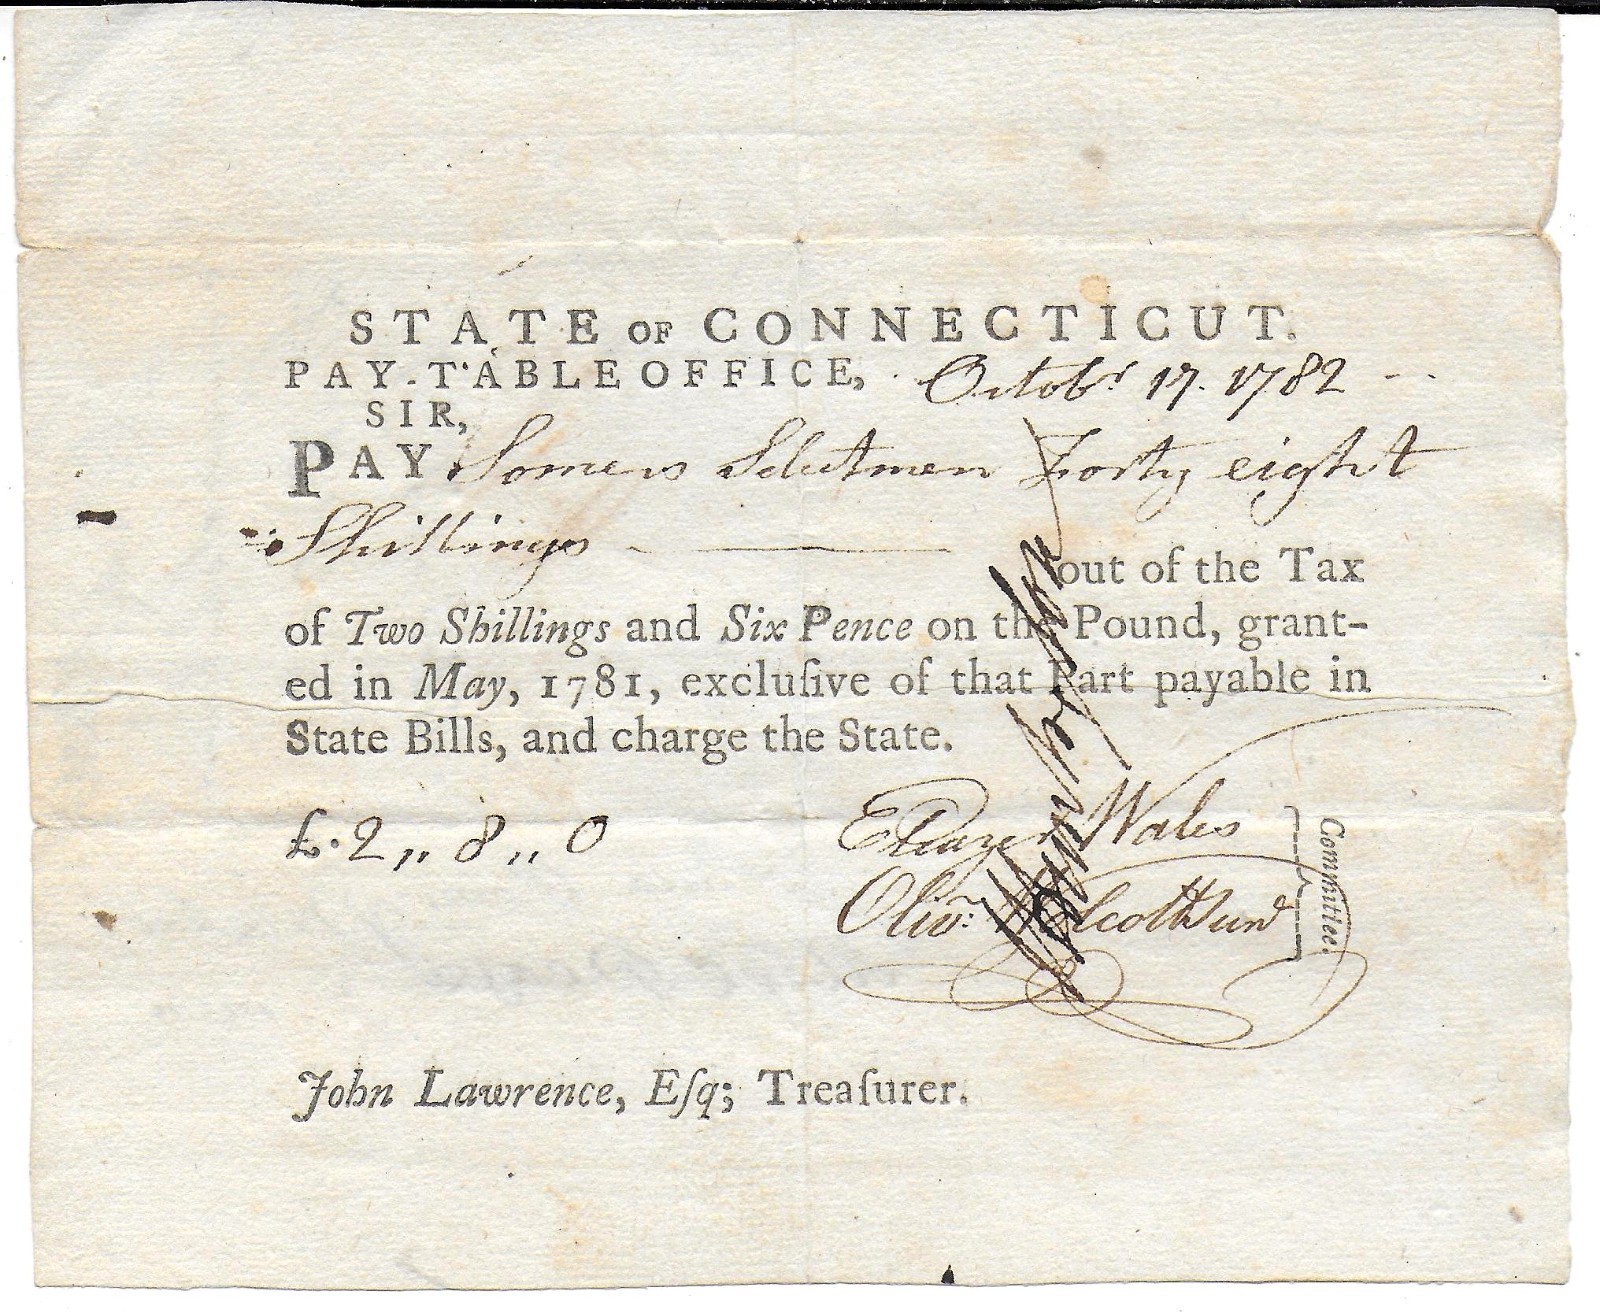 STATE OF CONNECTICUT.
PAY-TABLE OFFICE, Octobr 17. 1782
SIR,
PAY Somers Selectmen Forty eight
Shillings out of the Tax
of Two Shillings and Six Pence on the Pound, grant-
ed in May, 1781, excluſive of that Part payable in
State Bills, and charge the State.
£. 2 ,, 8 ,, 0
Eleazer Wales
Olivr: Wolcott Junr
Committee.
John Lawrence, Eſq; Treaſurer.